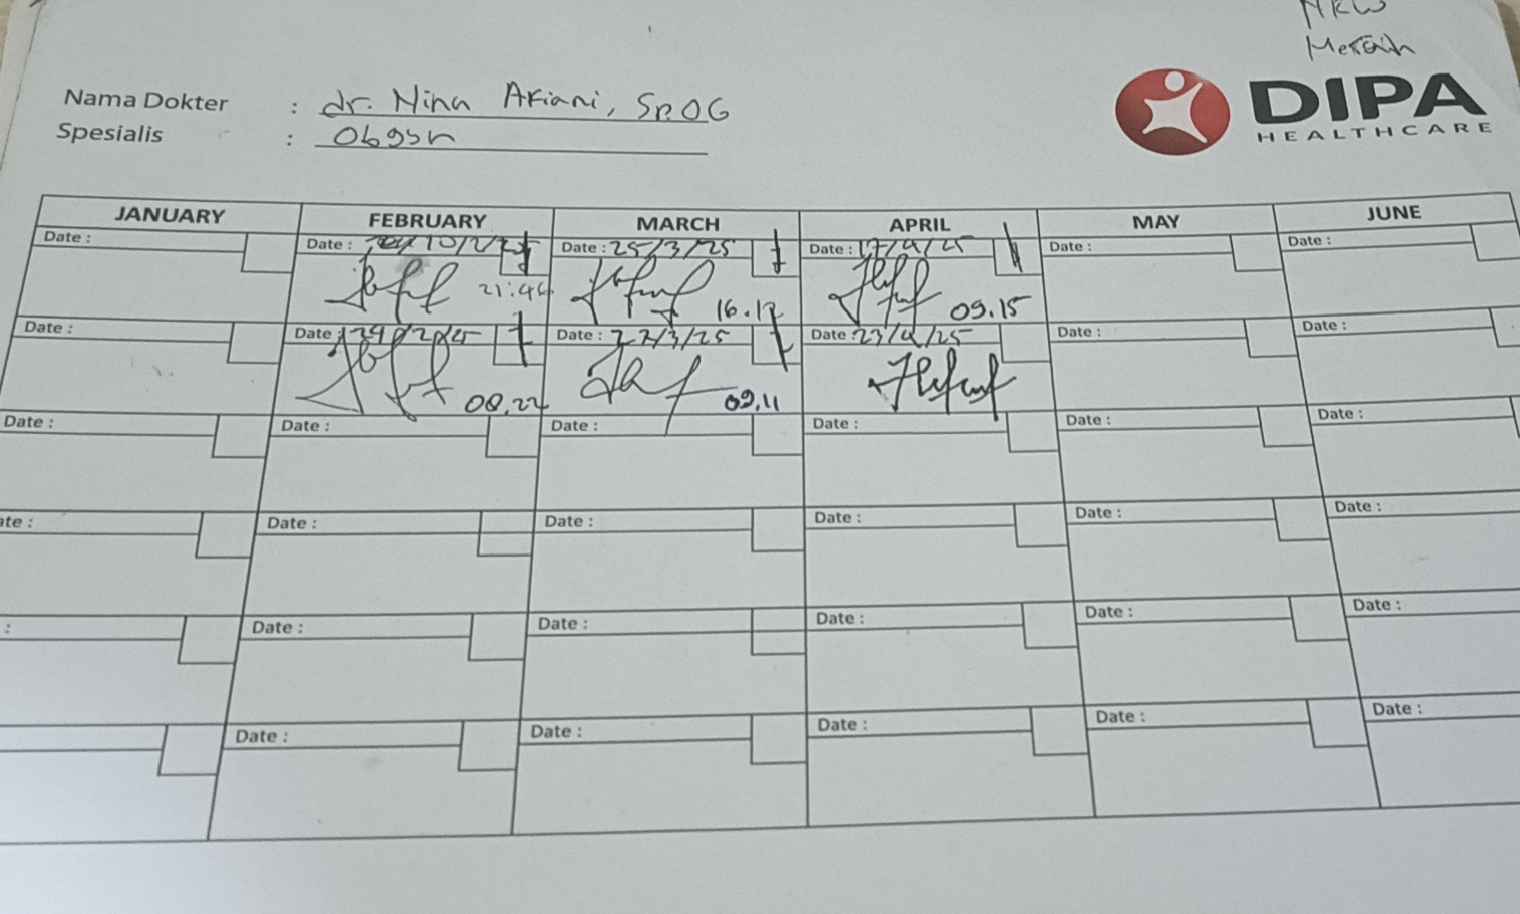 NKW
Merah
Nama Dokter : dr. Nina Ariani, Sp.OG
Spesialis : Obgsn
DIPA
HEALTHCARE
JANUARY FEBRUARY MARCH APRIL MAY JUNE
Date : Date : 10/2/25 Date : 25/3/25 Date : 17/4/25 Date : Date :
21:44 16.12 09.15
Date : Date : Date : 27/3/25 Date : 23/4/25 Date : Date :
08.22 09.11
Date : Date : Date : Date : Date : Date :
ate : Date : Date : Date : Date : Date :
: Date : Date : Date : Date : Date :
Date : Date : Date : Date : Date :